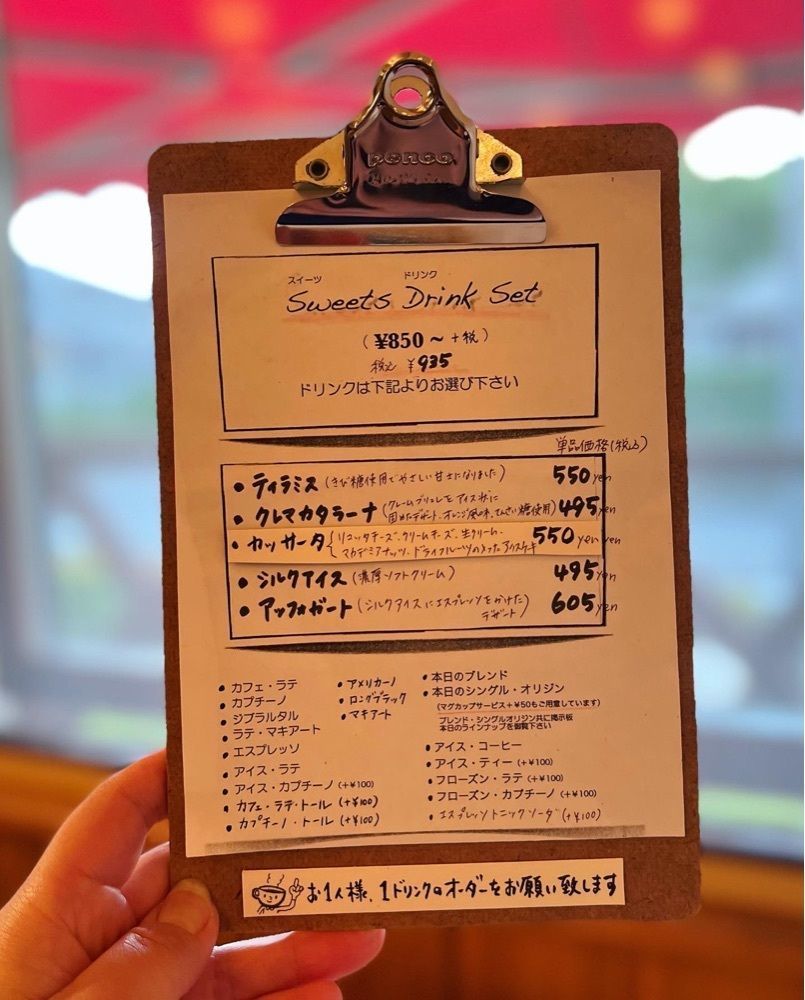 penco
スイーツ ドリンク
Sweets Drink Set
(¥850～ +税)
税込 ¥935
ドリンクは下記よりお選び下さい
単品価格(税込)
• ティラミス (きび糖使用でやさしい甘さになりました) 550yen
• クレマカタラーナ (クレームブリュレをアイス状に固めたデザート、オレンジ風味、てんさい糖使用) 495yen
• カッサータ {リコッタチーズ、クリームチーズ、生クリーム、 550yen yen
マカデミアナッツ、ドライフルーツの入ったアイスケーキ
• シルクアイス (濃厚ソフトクリーム) 495yen
• アッフォガート (シルクアイスにエスプレッソをかけたデザート) 605yen
• カフェ・ラテ
• カプチーノ
• ジブラルタル
• ラテ・マキアート
• エスプレッソ
• アイス・ラテ
• アイス・カプチーノ (+¥100)
• カフェ・ラテ・トール (+¥100)
• カプチーノ・トール (+¥100)
• アメリカーノ
• ロングブラック
• マキアート
• 本日のブレンド
• 本日のシングル・オリジン
(マグカップサービス+¥50もご用意しています)
ブレンド・シングルオリジン共に掲示板
本日のラインナップを御覧下さい
• アイス・コーヒー
• アイス・ティー (+¥100)
• フローズン・ラテ (+¥100)
• フローズン・カプチーノ (+¥100)
• エスプレッソトニックソーダ (+¥100)
お1人様、1ドリンクのオーダーをお願い致します